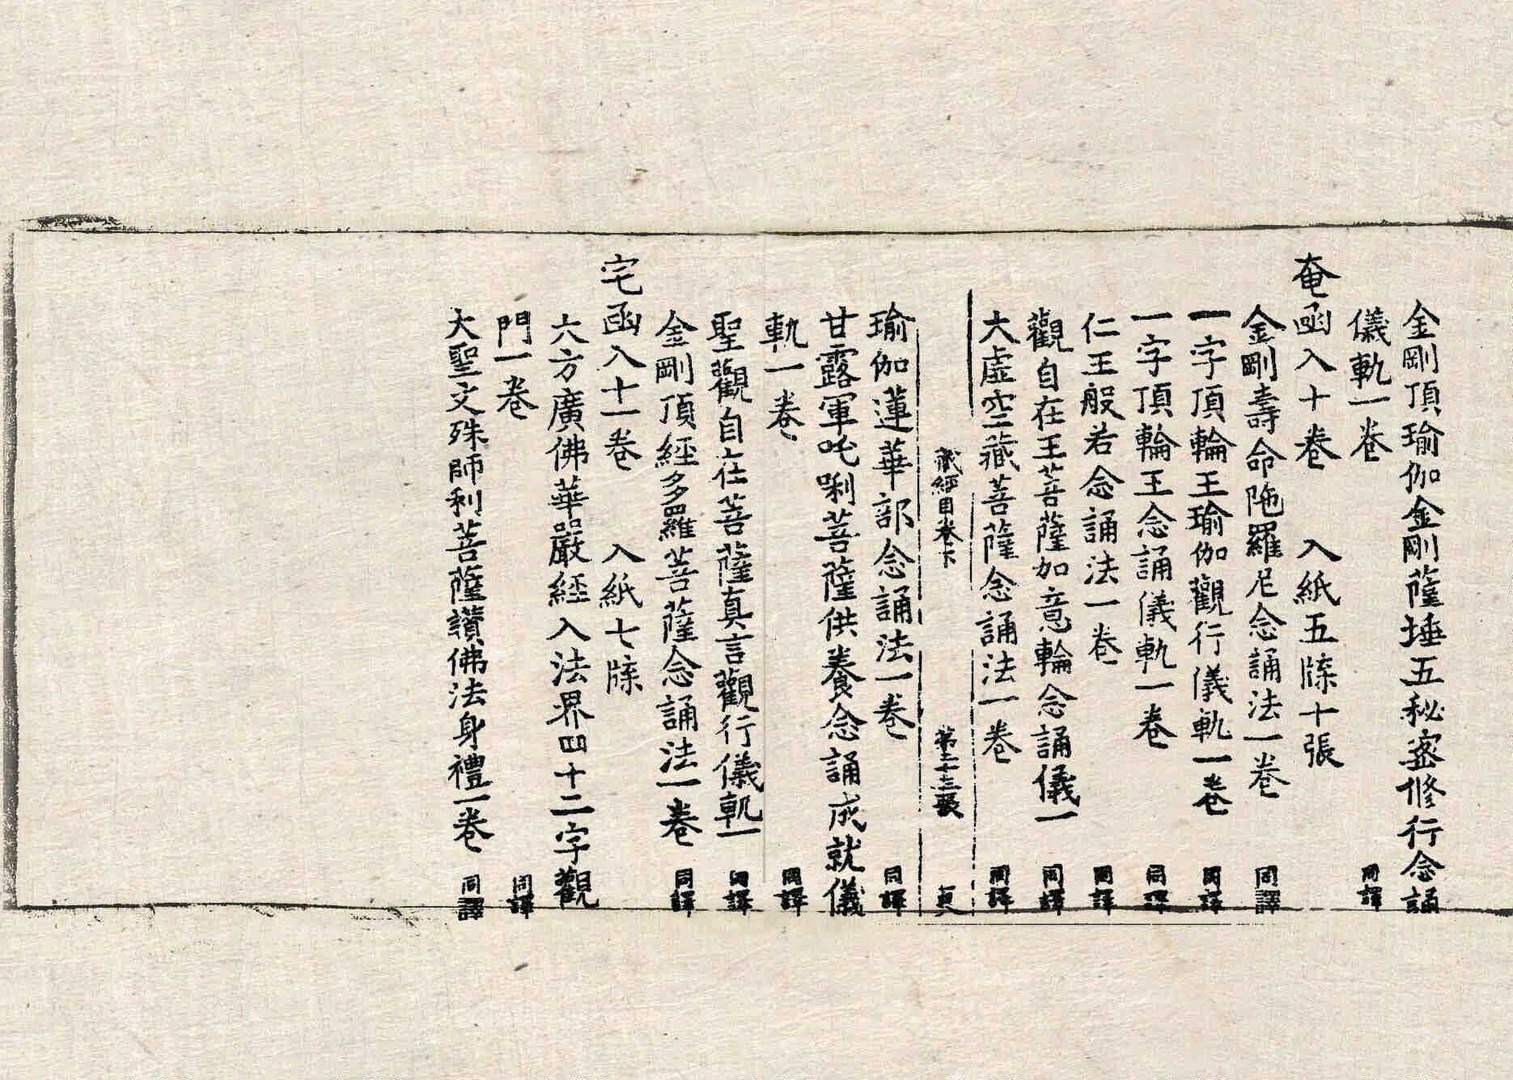 金剛頂瑜伽金剛薩埵五秘密修行念誦
儀軌一卷 同譯
奄函入十卷 入紙五牒十張
金剛壽命陁羅尼念誦法一卷 同譯
一字頂輪王瑜伽觀行儀軌一卷 同譯
一字頂輪王念誦儀軌一卷 同譯
仁王般若念誦法一卷 同譯
觀自在王菩薩如意輪念誦儀一 同譯
大虛空藏菩薩念誦法一卷 同譯
藏經目卷下 第三十三張
瑜伽蓮華部念誦法一卷 同譯
甘露軍吒唎菩薩供養念誦成就儀
軌一卷 同譯
聖觀自在菩薩真言觀行儀軌一 同譯
金剛頂經多羅菩薩念誦法一卷 同譯
宅函入十一卷 入紙七牒
六方廣佛華嚴經入法界四十二字觀
門一卷 同譯
大聖文殊師利菩薩讃佛法身禮一卷 同譯